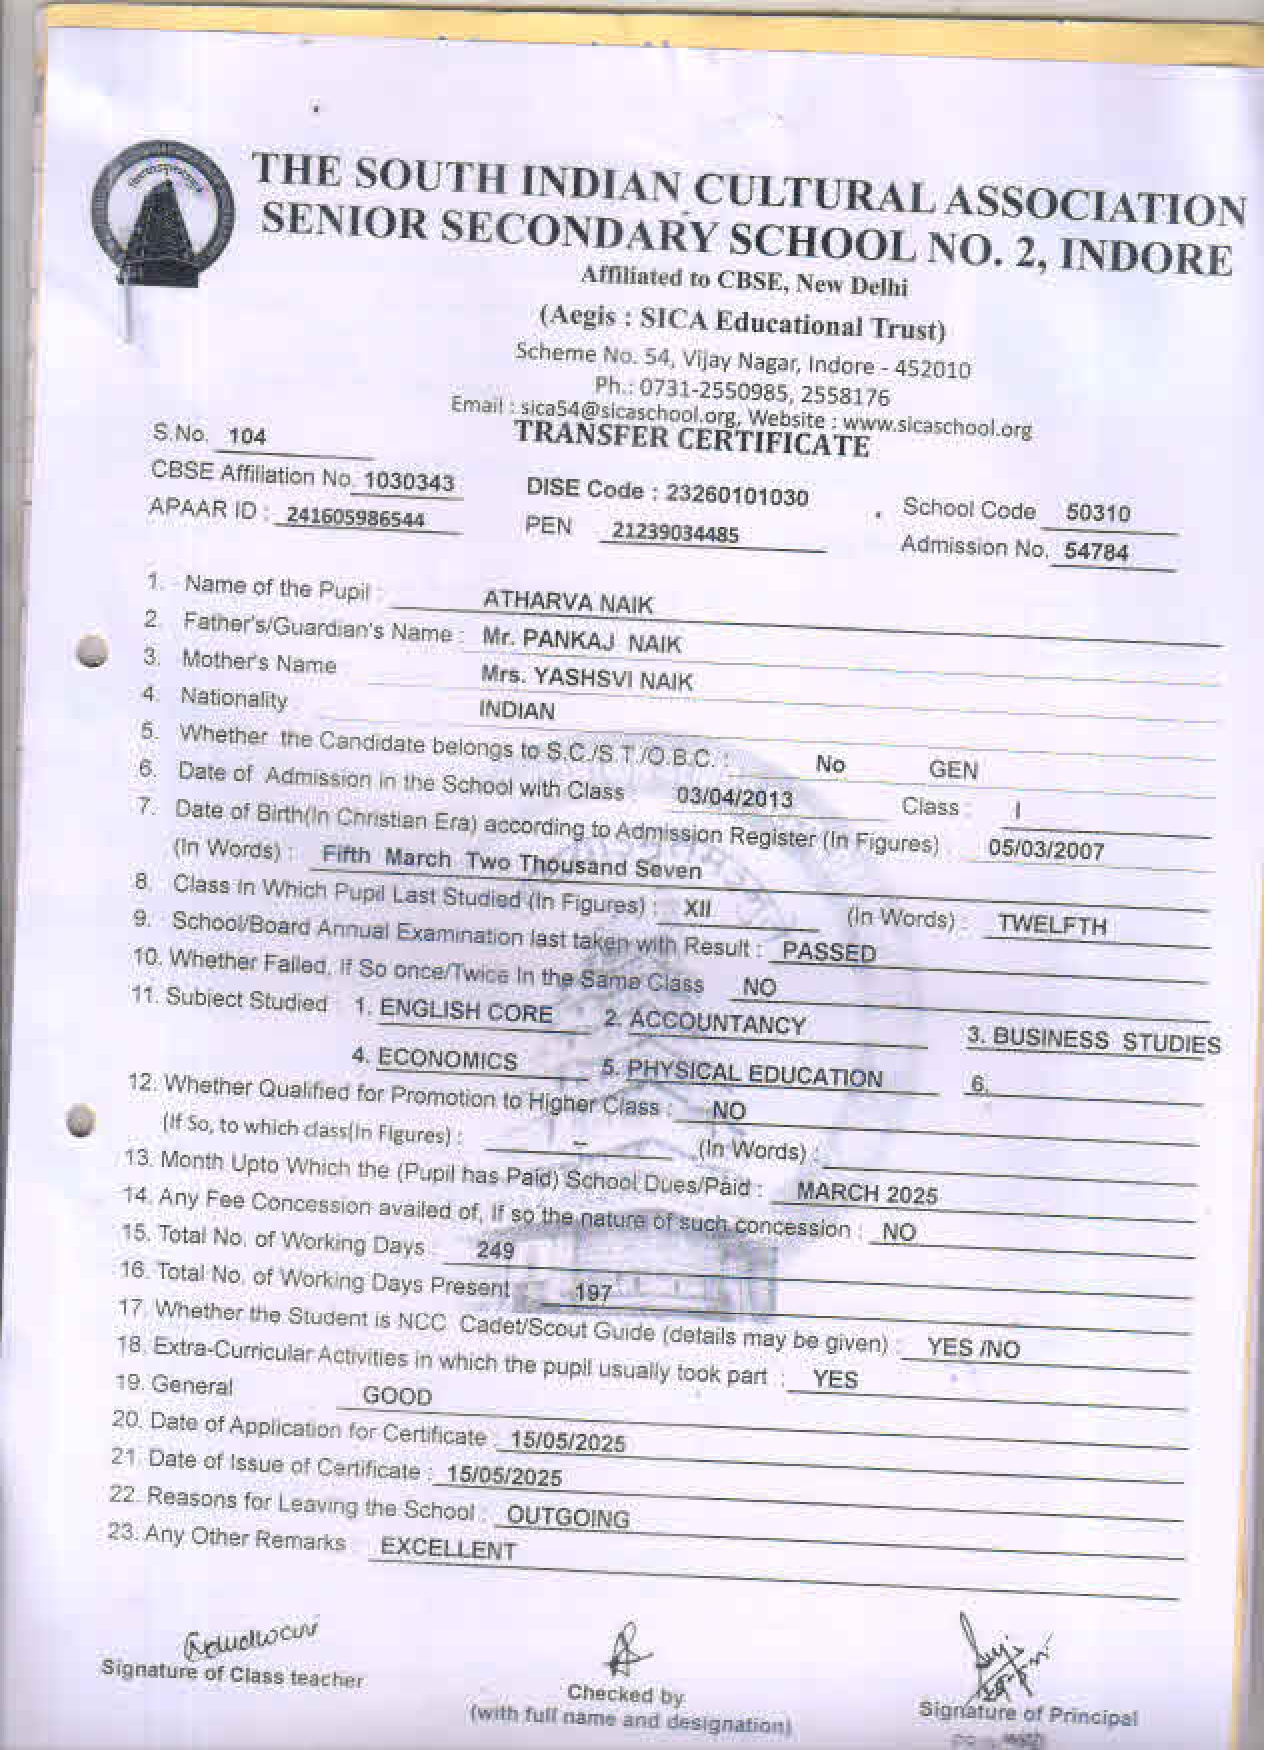 THE SOUTH INDIAN CULTURAL ASSOCIATION
SENIOR SECONDARY SCHOOL NO. 2, INDORE
Affiliated to CBSE, New Delhi
(Aegis : SICA Educational Trust)
Scheme No. 54, Vijay Nagar, Indore - 452010
Ph.: 0731-2550985, 2558176
Email : sica54@sicaschool.org, Website : www.sicaschool.org
S.No. 104 TRANSFER CERTIFICATE
CBSE Affiliation No. 1030343 DISE Code : 23260101030 School Code 50310
APAAR ID : 241605986544 PEN 21239034485 Admission No. 54784
1. Name of the Pupil : ATHARVA NAIK
2. Father's/Guardian's Name : Mr. PANKAJ NAIK
3. Mother's Name Mrs. YASHSVI NAIK
4. Nationality INDIAN
5. Whether the Candidate belongs to S.C./S.T./O.B.C. : No GEN
6. Date of Admission in the School with Class 03/04/2013 Class : I
7. Date of Birth(In Christian Era) according to Admission Register (In Figures) 05/03/2007
(In Words) : Fifth March Two Thousand Seven
8. Class In Which Pupil Last Studied (In Figures) : XII (In Words) : TWELFTH
9. School/Board Annual Examination last taken with Result : PASSED
10. Whether Failed, If So once/Twice In the Same Class NO
11. Subject Studied 1. ENGLISH CORE 2. ACCOUNTANCY 3. BUSINESS STUDIES
4. ECONOMICS 5. PHYSICAL EDUCATION 6.
12. Whether Qualified for Promotion to Higher Class : NO
(If So, to which class(In Figures) : – (In Words) :
13. Month Upto Which the (Pupil has Paid) School Dues/Paid : MARCH 2025
14. Any Fee Concession availed of, If so the nature of such concession : NO
15. Total No. of Working Days : 249
16. Total No. of Working Days Present 197
17. Whether the Student is NCC Cadet/Scout Guide (details may be given) : YES /NO
18. Extra-Curricular Activities in which the pupil usually took part : YES
19. General GOOD
20. Date of Application for Certificate : 15/05/2025
21. Date of Issue of Certificate : 15/05/2025
22. Reasons for Leaving the School : OUTGOING
23. Any Other Remarks EXCELLENT
Signature of Class teacher
Checked by
(with full name and designation)
Signature of Principal